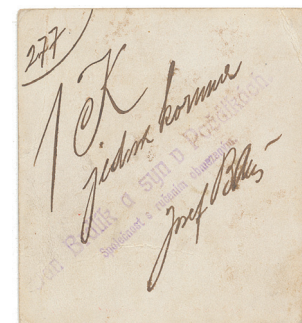 277
1 K
jedna koruna
a syn v
Společnost s ručením obmezeným
Josef